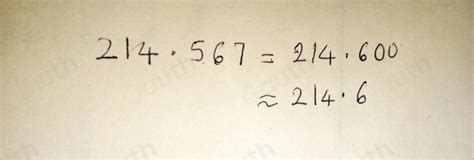 214.567 = 214.600
≈ 214.6